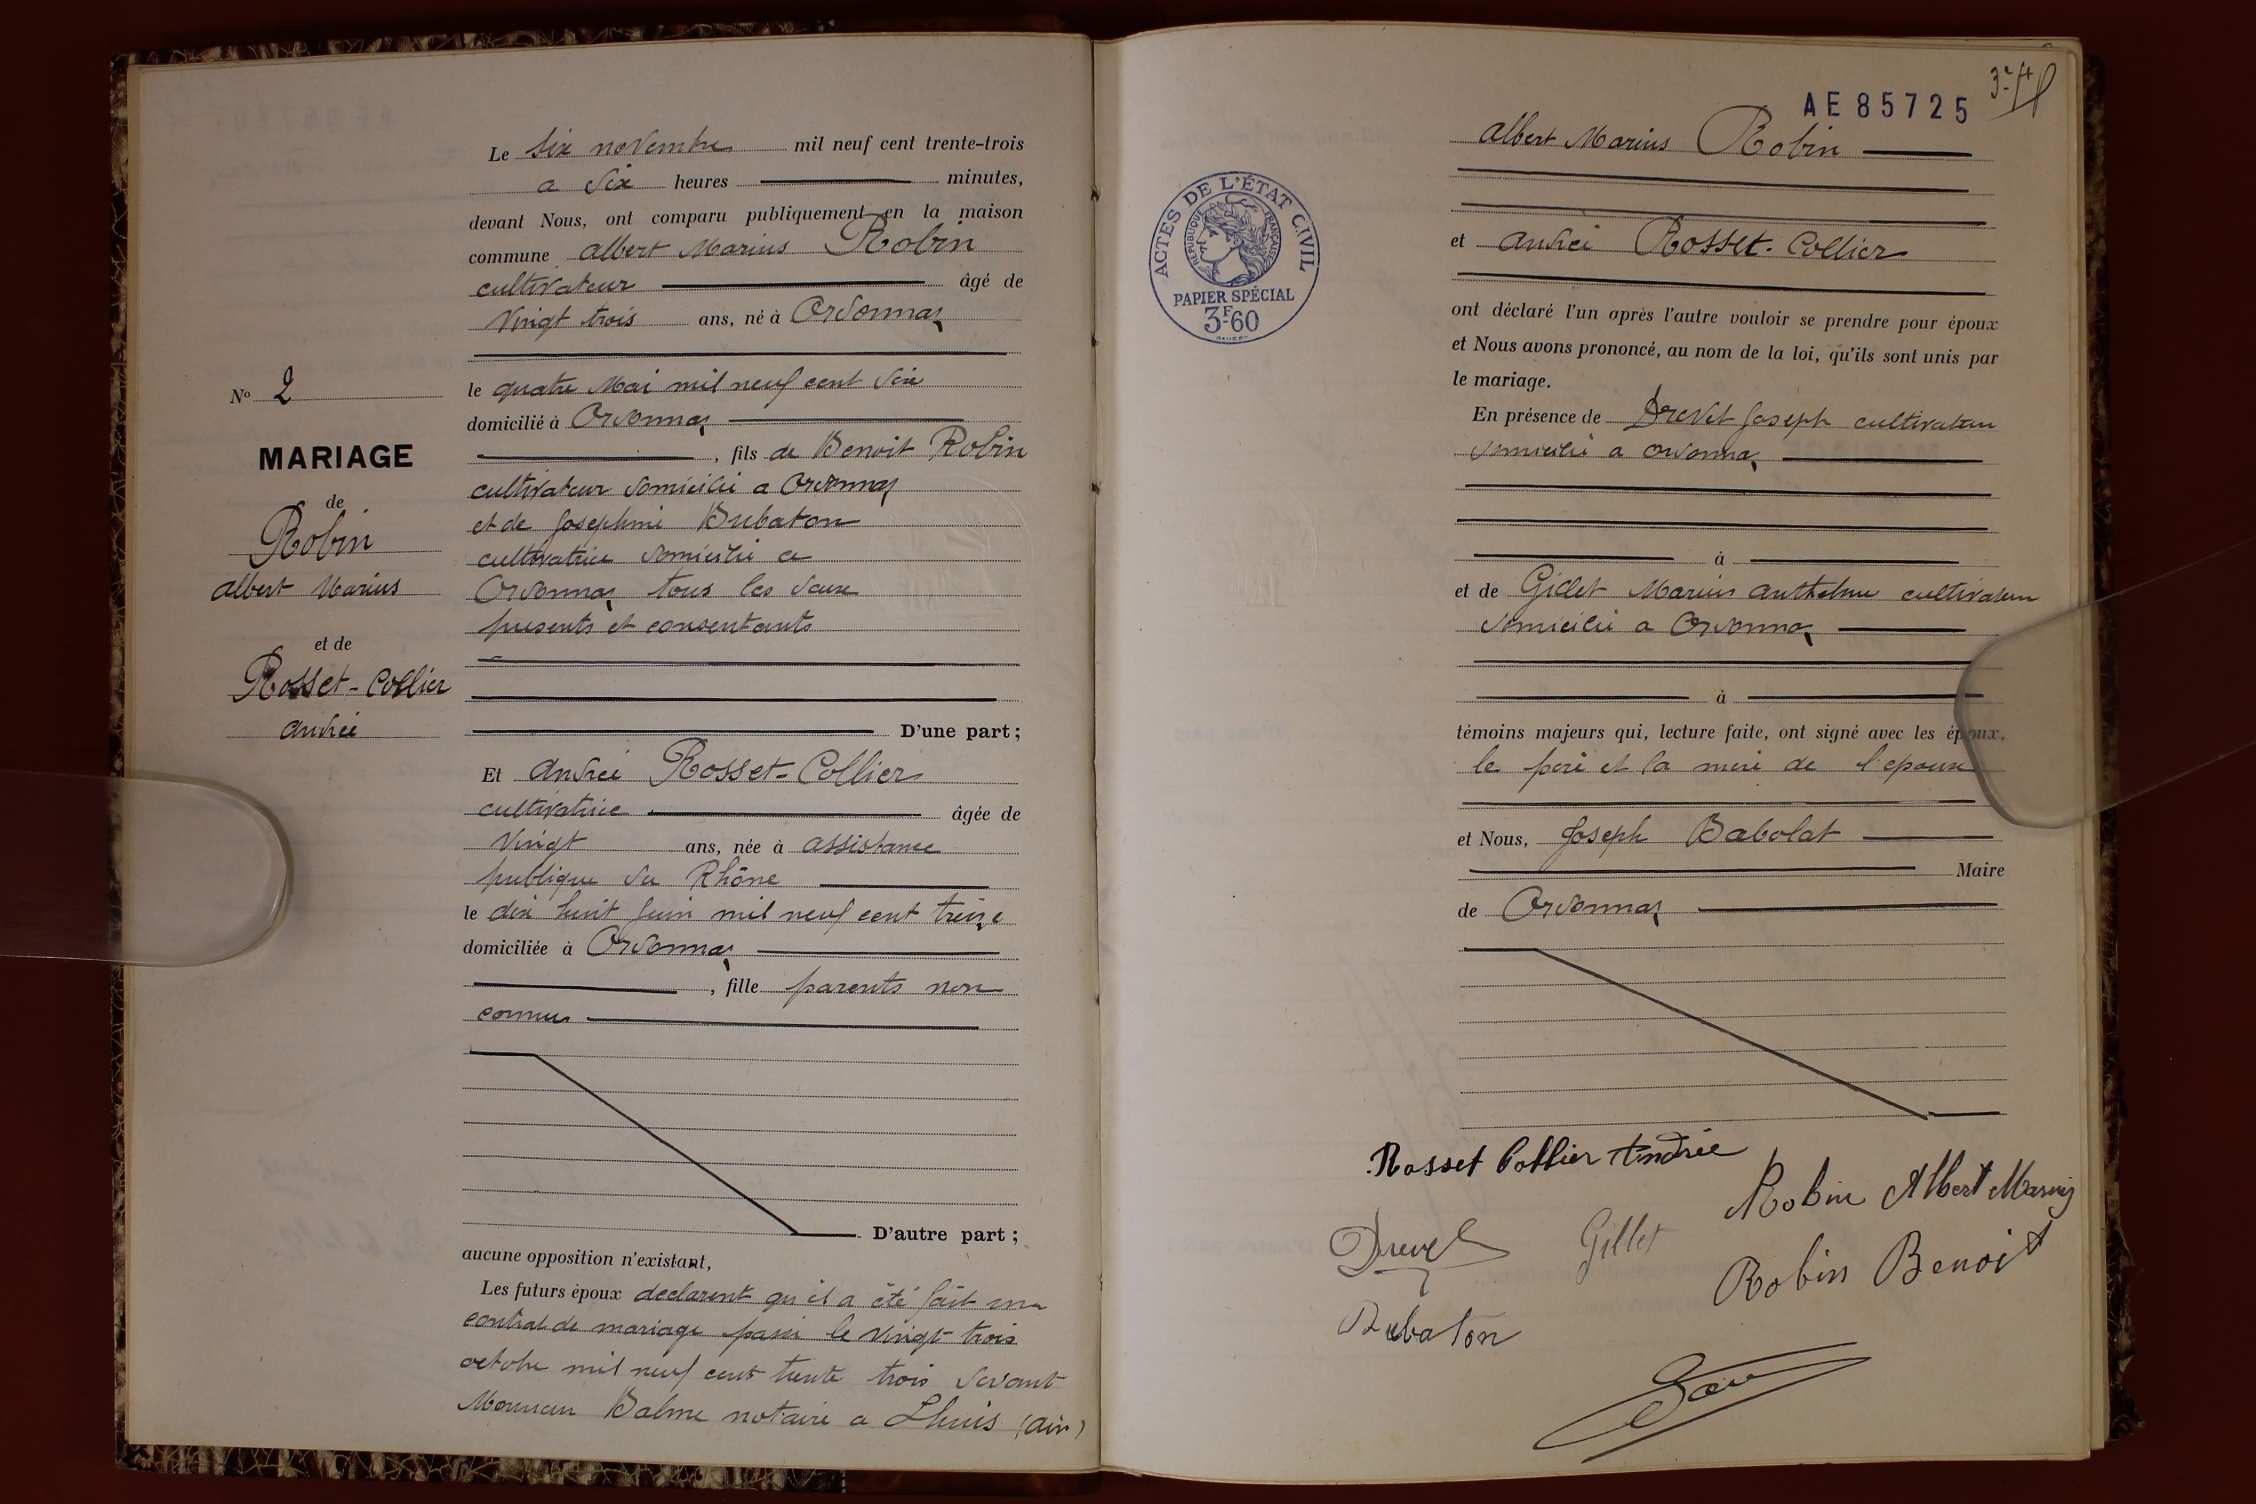 Le six novembre mil neuf cent trente-trois
a six heures minutes,
devant Nous, ont comparu publiquement en la maison
commune Albert Marius Robin
cultivateur âgé de
vingt trois ans, né à Ordonnaz
le quatre Mai mil neuf cent dix
domicilié à Ordonnaz
, fils de Benoit Robin
cultivateur domicilié a Ordonnaz
et de Josephine Dubaton
cultivatrice domicilié a
Ordonnaz tous les deux
presents et consentants
D'une part ;
No 2
MARIAGE
de
Robin
Albert Marius
et de
Rosset-Collier
Andrée
Et Andrée Rosset-Collier
cultivatrice âgée de
vingt ans, née à assistance
publique du Rhône
le dix huit Juin mil neuf cent treize
domiciliée à Ordonnaz
, fille parents non
connus
D'autre part ;
aucune opposition n'existant,
Les futurs époux declarent qu'il a été fait un
contrat de mariage passé le vingt-trois
octobre mil neuf cent trente trois devant
Monsieur Balme notaire a Lhuis (Ain)
AE 85725
ACTES DE L'ÉTAT CIVIL
RÉPUBLIQUE FRANÇAISE
PAPIER SPÉCIAL
3F60
Albert Marius Robin
et Andrée Rosset-Collier
ont déclaré l'un après l'autre vouloir se prendre pour époux
et Nous avons prononcé, au nom de la loi, qu'ils sont unis par
le mariage.
En présence de Drevet Joseph cultivateur
domicilié a Ordonnaz
à
et de Gillet Marius Anthelme cultivateur
domicilié a Ordonnaz
à
témoins majeurs qui, lecture faite, ont signé avec les époux,
le père et la mère de l'epoux
et Nous, Joseph Babolat
Maire
de Ordonnaz
Rosset Collier Andrée
Robin Albert Marius
Drevet Gillet
Robin Benoit
Dubaton